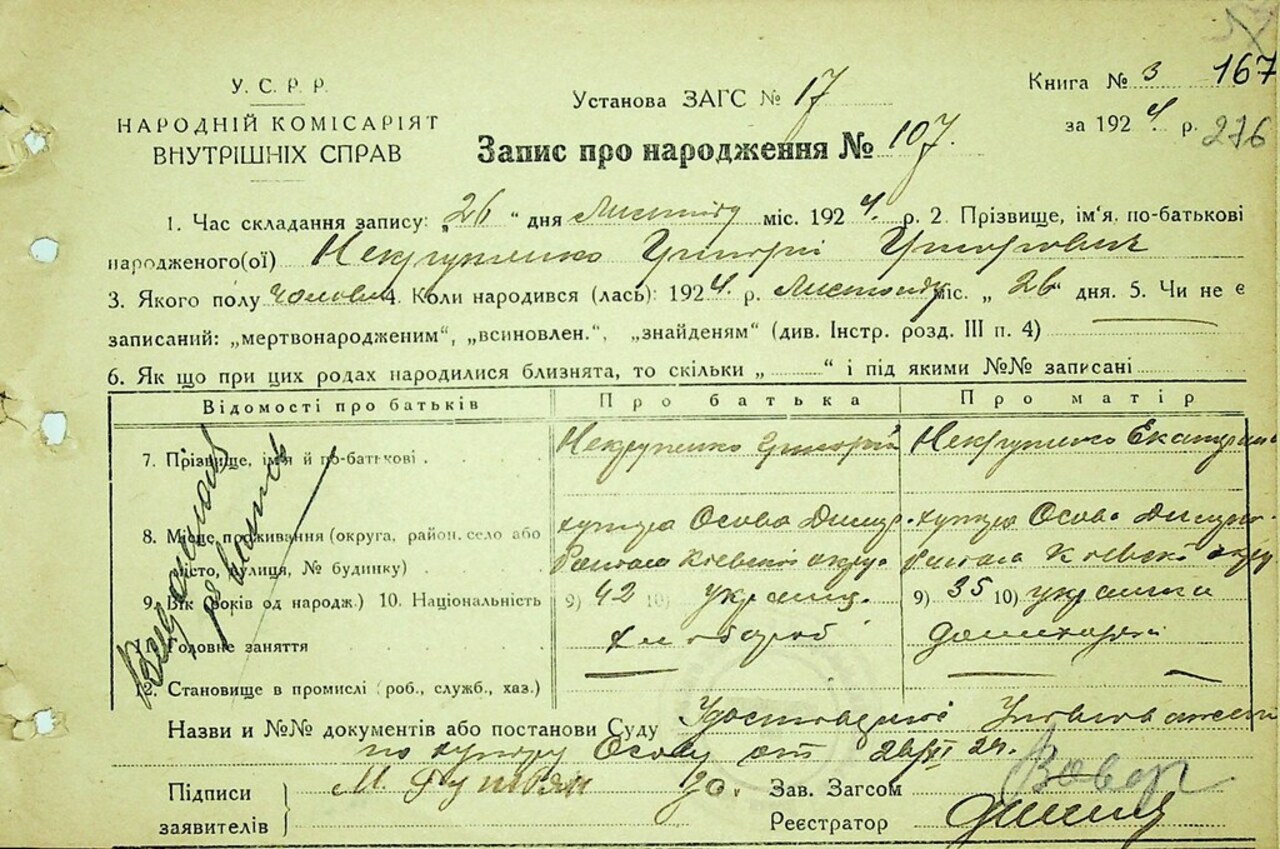 У. С. Р. Р.
НАРОДНІЙ КОМІСАРІЯТ
ВНУТРІШНІХ СПРАВ
Установа ЗАГС № 17
Запис про народження № 107.
Книга № 3 167
за 1924 р. 276
1. Час складання запису: „26“ дня Листопаду міс. 1924. р. 2. Прізвище, ім'я, по-батькові
народженого(ої) Григорій Григорович
3. Якого полу чолов. 4. Коли народився (лась): 1924 р. Листопаду міс. „26“ дня. 5. Чи не є
записаний: „мертвонародженим“, „всиновлен.“, „знайденям“ (див. Інстр. розд. III п. 4)
6. Як що при цих родах народилися близнята, то скільки „ “ і під якими №№ записані
Відомості про батьків Про батька Про матір
7. Прізвище, ім'я й по-батькові Григорій
8. Місце проживання (округа, район, село або хутор Осова хутор Осова
місто, вулиця, № будинку) Київської округ. Київської округ
9. Вік (років од народж.) 10. Національність 9) 42 10) украинц. 9) 35 10) украинка
Головне заняття хлібороб
12. Становище в промислі (роб., служб., хаз.)
Назви и №№ документів або постанови Суду
по хутору Осову от 26/XI 24.
Підписи М.
заявителів
Зав. Загсом
Реєстратор